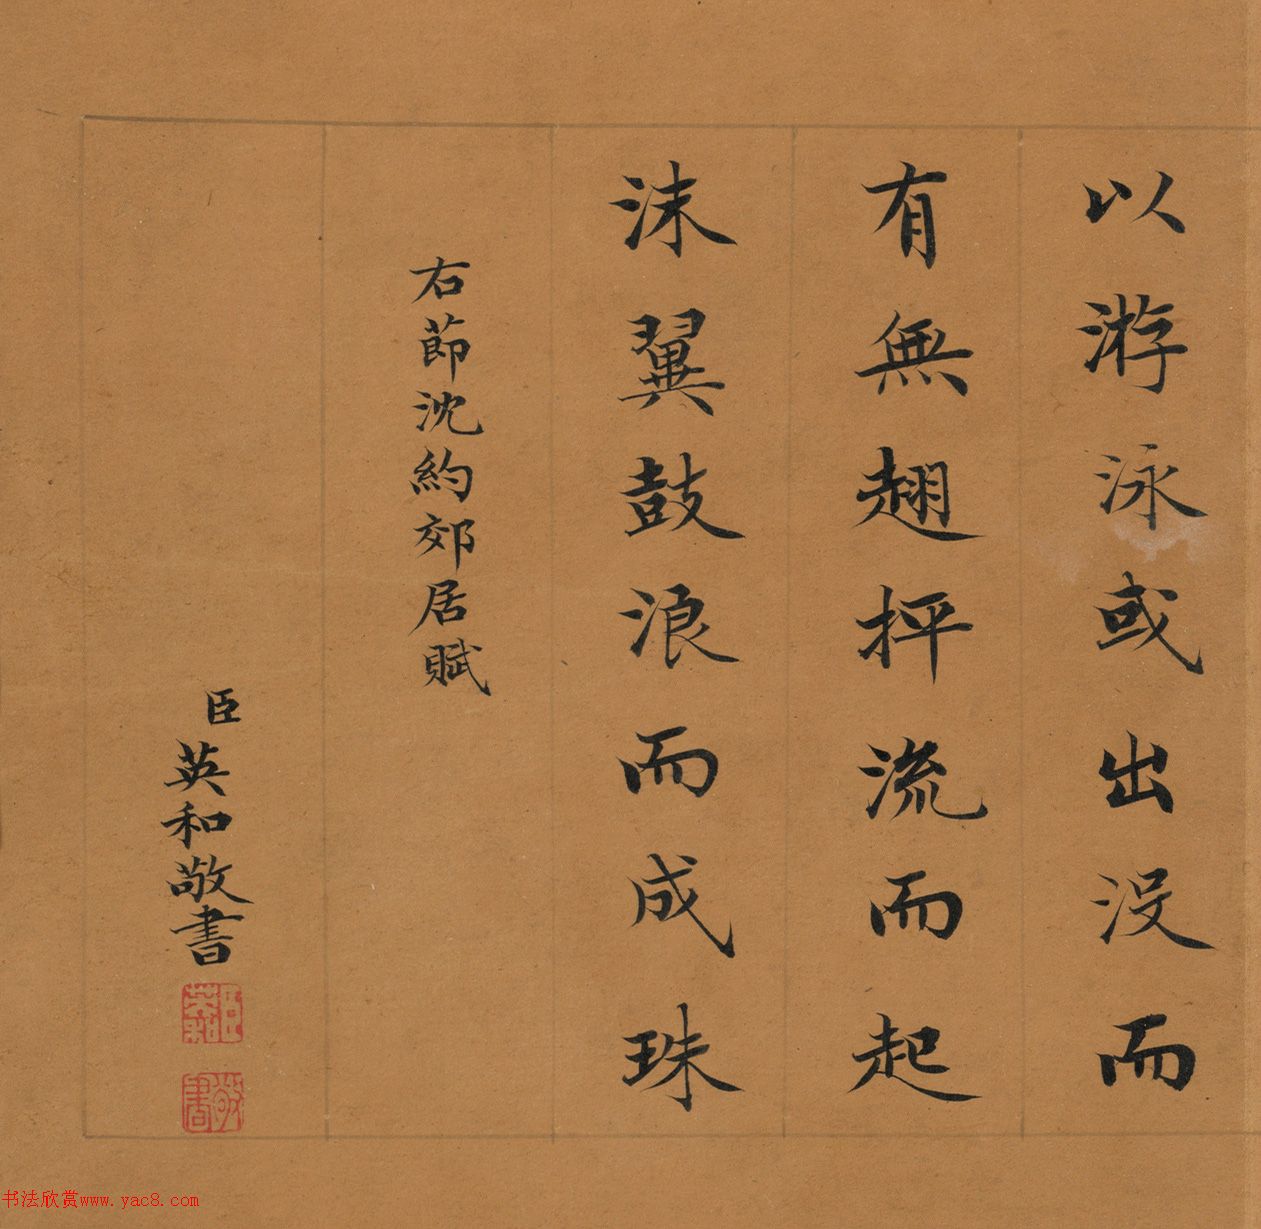 以游泳或出没而
有無趐抨流而起
沫翼鼓浪而成珠
右節沈約郊居賦
臣英和敬書
臣英和
敬書
书法欣赏www.yac8.com